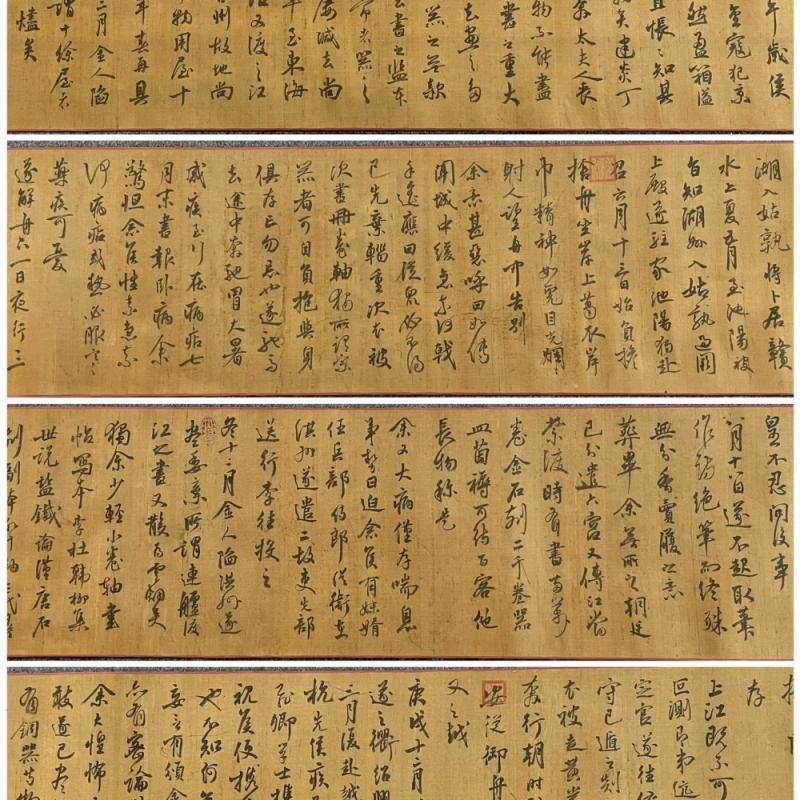 年歲侯
金寇犯京
然盈箱溢
且悵悵知其
矣建炎丁
奔太夫人喪
物不能盡
書之重大
去畫之多
器之無款
去書之監本
者器之
屢減去尚
至東海
又渡江
州故地尚
物用屋十
年春再具
二月金人陷
謂十餘屋者
燼矣
湖入姑孰將卜居贛
水上夏五月至池陽被
旨知湖州入姑孰過闕
上殿遂駐家池陽獨赴
召六月十三日始負擔
捨舟坐岸上葛衣岸
巾精神如虎目光爛
射人望舟中告別
余意甚惡呼曰如傳
聞城中緩急奈何戟
手遙應曰從眾必不得
已先棄輜重次衣被
次書冊卷軸獨所謂宗
器者可自負抱與身
俱存亡勿忘也遂馳馬
去途中奔馳冒大暑
感疾至行在病痁七
月末書報臥病余
驚怛余侯性素急奈
何病痁或熱必服寒
藥疾可憂
遂解舟六一日夜行三
皇不忍問後事
八月十八日遂不起取筆
作詩絕筆而終殊
無分香賣履之意
葬畢余無所之朝廷
已分遣六宮又傳江當
禁渡時有書尚萬
卷金石刻二千卷器
皿茵褥可待百客他
長物稱是
余又大病僅存喘息
事勢日迫余侯有妹婿
任兵部侍郎從衛在
洪州遂遣二故吏先部
送行李往投之
冬十二月金人陷洪州遂
盡委棄所謂連艫渡
江之書又散為雲煙矣
獨余少輕小卷軸書
帖寫本李杜韓柳集
世說鹽鐵論漢唐石
刻副本數十軸三代鼎
存
上江既不可
叵測有弟迒
定官遂往依
守已遁之剡
衣被走黃岩
奔行朝時
安從御舟
又之越
庚戌十二月
遂之衢紹興
三月復赴越
杭先侯疾
飛卿學士攜
視侯便攜
也不知何
妄言有頒金
亦有密論
余大惶怖
敢遂已盡
有銅器等物